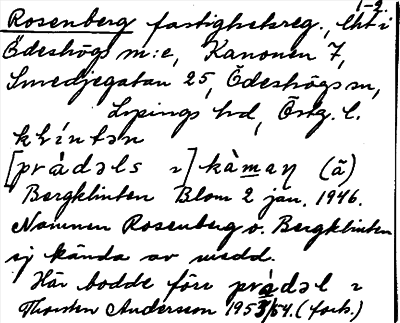 1-2
Rosenberg fastighetsreg., Eht i
Ödeshögs m:e, Kanonen 7,
Smedjegatan 25, Ödeshögs sn,
Lysings hd, Östg. l.
klintən
[prádəls 2] kàmaŋ (ã)
Bergklinten Blom 2 jan. 1946.
Namnen Rosenberg o. Bergklinten
ej kända av medd.
Här bodde förr prádəl 2
Thorsten Andersson 1953/54. (forts.)